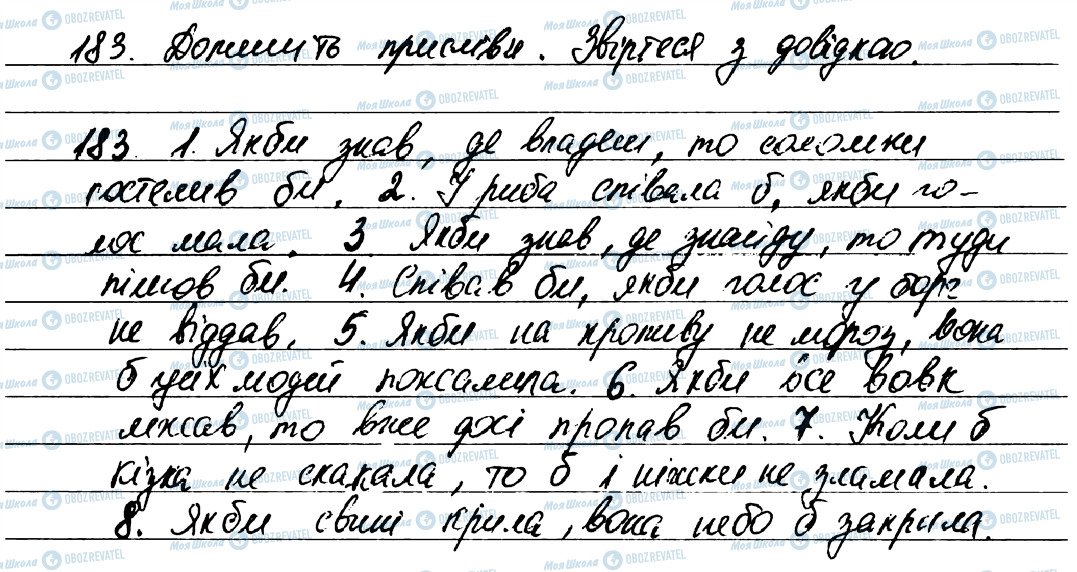 183. Допишіть прислівя. Звіртеся з довідкою.
183. 1. Якби знав, де впадеш, то соломки
постелив би. 2. І риба співала б, якби го-
лос мала. 3 Якби знав, де знайду, то туди
пішов би. 4. Співав би, якби голос у борг
не віддав. 5. Якби на кропиву не мороз, вона
б усіх людей пожалила. 6. Якби все вовк
лежав, то вже досі пропав би. 7. Коли б
кізка не скакала, то б і ніжки не зламала.
8. Якби свині крила, вона небо б закрила.